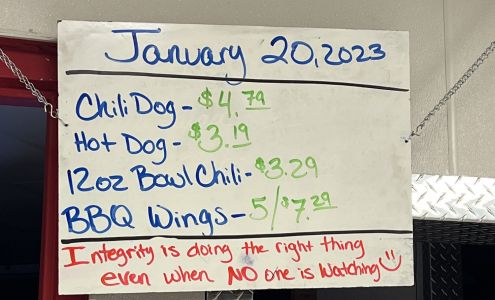 January 20, 2023
Chili Dog - $4.79
Hot Dog - $3.19
12oz Bowl Chili - $3.29
BBQ Wings - 5/$7.29
Integrity is doing the right thing
even when NO one is Watching